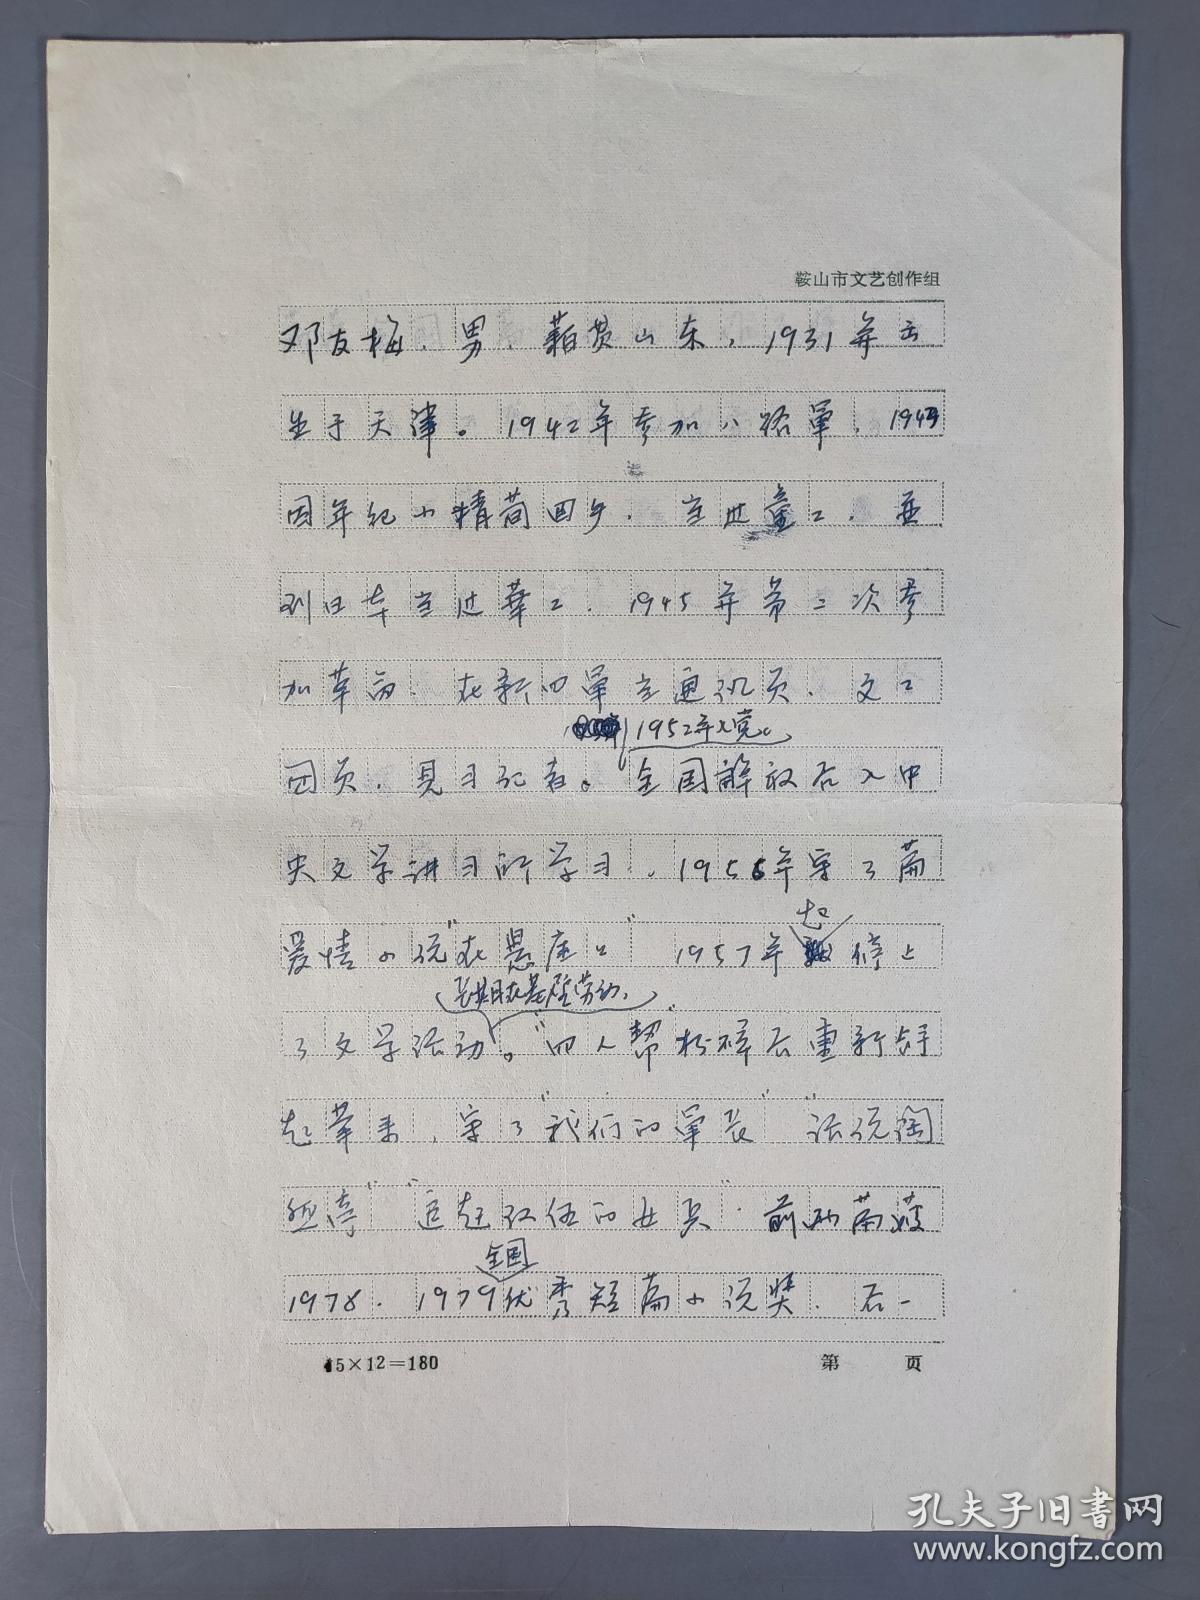 鞍山市文艺创作组
邓友梅、男、籍贯山东,1931年出
生于天津。1942年参加八路军,1943
因年纪小精简回乡。当过童工,並
到日本当过華工。1945年第二次参
加革命、在新四軍当通讯员、文工
1952年入党。
团员、見习记者。全国解放后入中
央文学讲习所学习。1956年写了篇
爱情小说"在悬崖上"1957年起停止
长期在基层劳动,
了文学活动。"四人幫"粉碎后重新拿
起筆来,写了"我们的軍長""话说陶
然亭""追赶队伍的女兵"前两篇获
全国
1978、1979优秀短篇小说奖、后一
15×12=180
第 页
孔夫子旧書网
www.kongfz.com